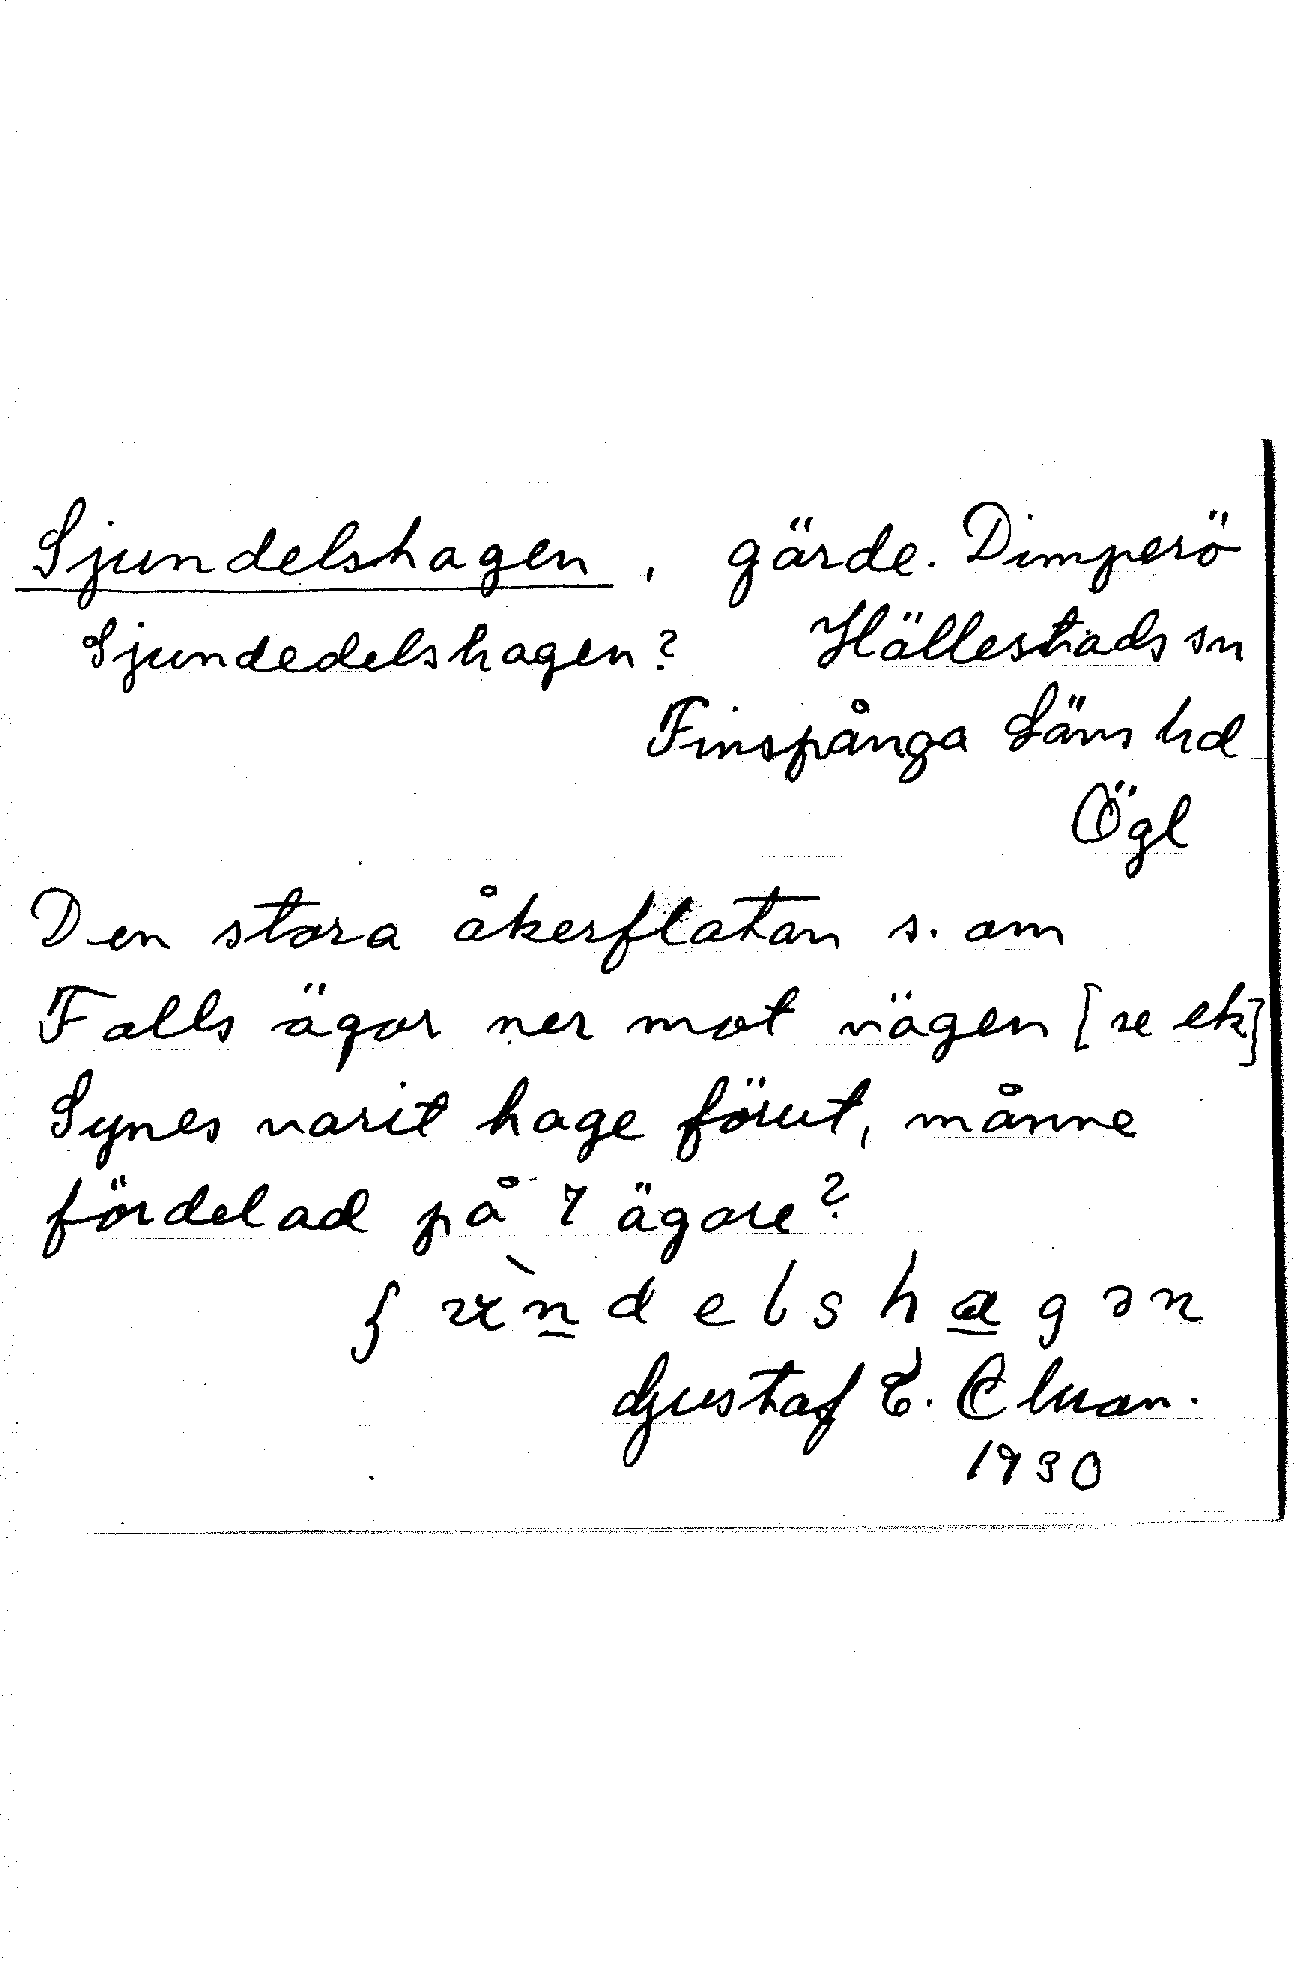 Sjundelshagen, gärde. Dimperö
Sjundedelshagen? Hällestads sn
Finspånga Läns hd
Ögl
Den stora åkerflatan s. om
Falls ägor ner mot vägen [se ek]
Synes varit hage förut, månne
fördelad på 7 ägare?
delshagən
Gustaf T.
1930